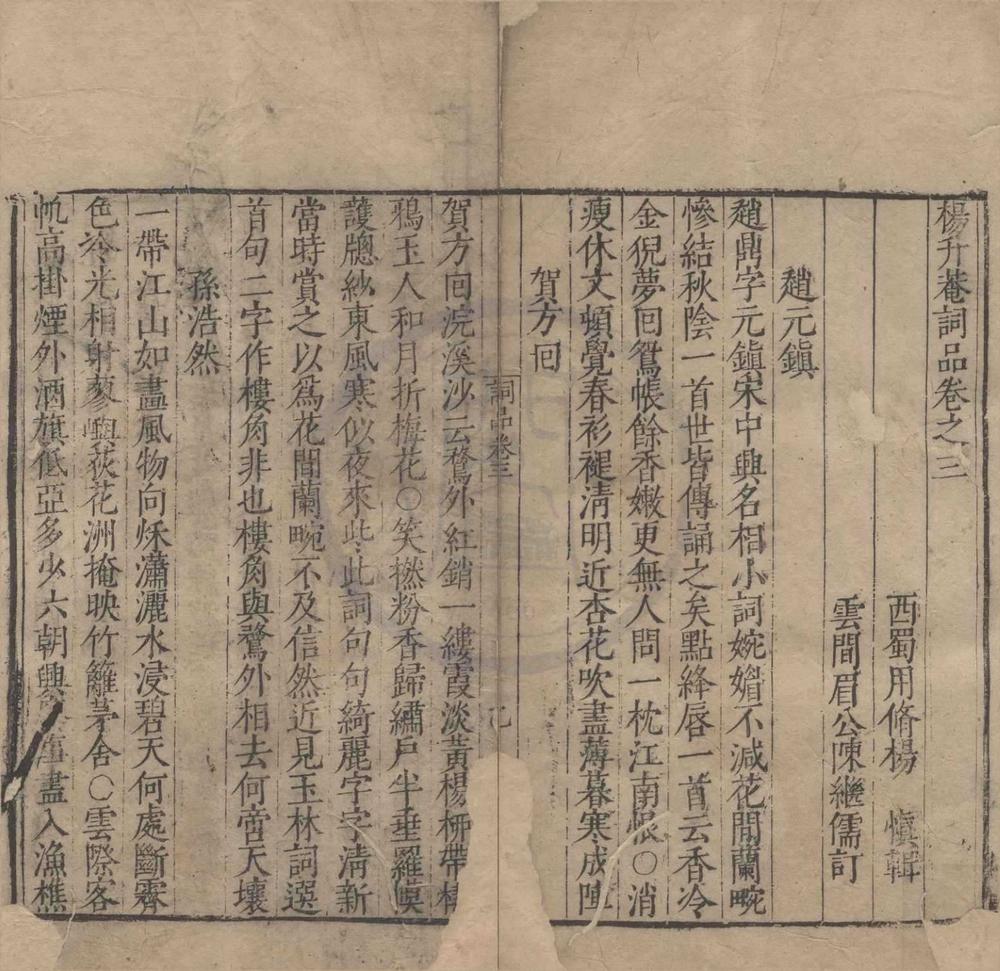 楊升菴詞品卷之三
西蜀用脩楊　慎輯
雲間眉公陳繼儒訂
趙元鎮
趙鼎字元鎮宋中興名相小詞婉媚不減花間蘭畹
慘結秋陰一首世皆傳誦之矣點絳唇一首云香冷
金猊夢回鴛帳餘香嫩更無人問一枕江南恨○消
瘦休文頓覺春衫褪淸明近杏花吹盡薄暮寒成陣
賀方回
詞品卷三
賀方回浣溪沙云鶩外紅銷一縷霞淡黃楊柳帶棲
鴉玉人和月折梅花○笑撚粉香歸繡戶半垂羅幙
護牕紗東風寒似夜來些此詞句句綺麗字字淸新
當時賞之以爲花間蘭畹不及信然近見玉林詞選
首句二字作樓角非也樓角與鶩外相去何啻天壤
孫浩然
一帶江山如畫風物向秌瀟灑水浸碧天何處斷霽
色冷光相射蓼嶼荻花洲掩映竹籬茅舍○雲際客
帆高掛煙外酒旗低亞多少六朝興　事盡入漁樵